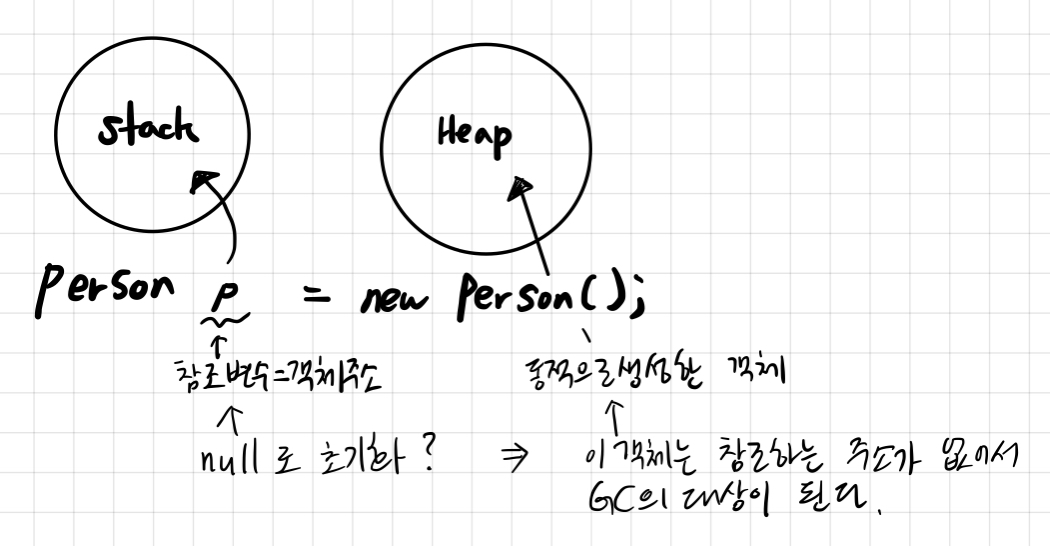 stack
Heap
person p = new person();
참조변수=객체주소
동적으로생성한 객체
null로 초기화? ⇒ 이객체는 참조하는 주소가 없어서
GC의 대상이 된다.